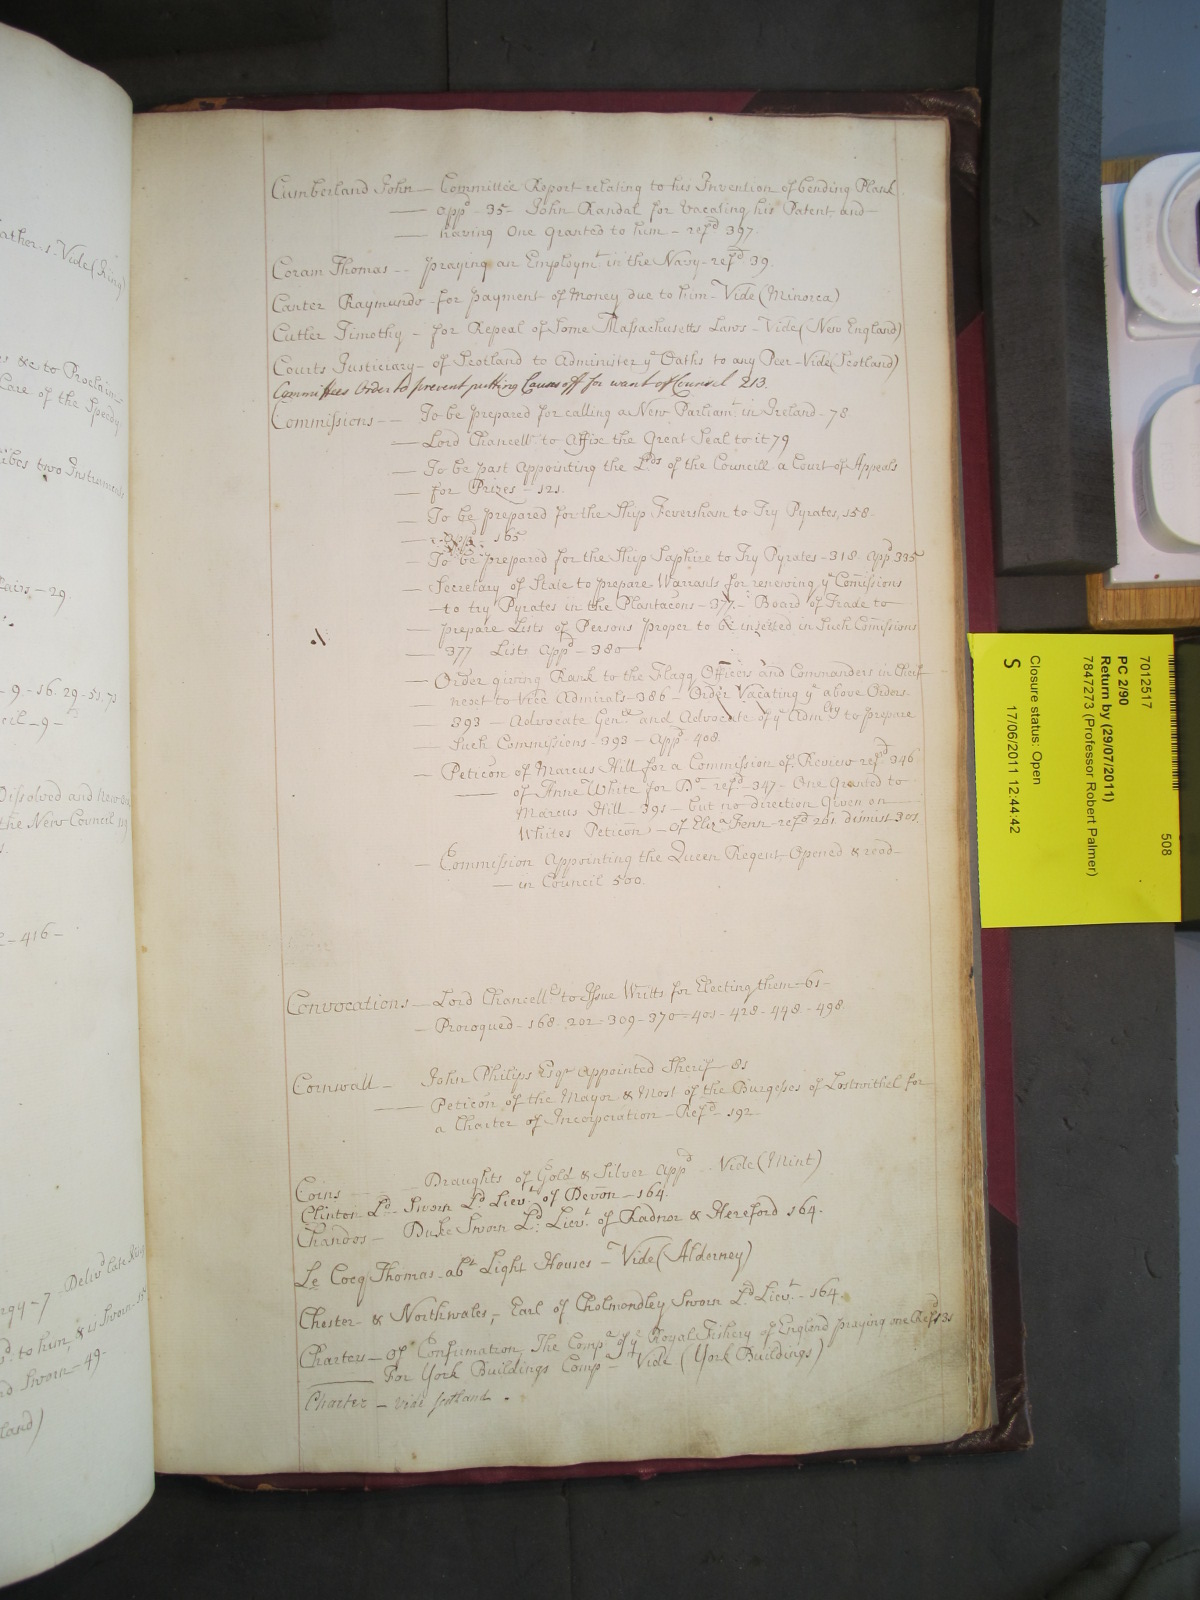 ather-1-Vide (King)
s &c to Proclaim
Care of the Speedy
ribes two Instruments
fairs - 29.
- 9 - 16. 29 - 51. 73
cil - 9 -
Dissolved and New
the New Council
- 416 -
rgy - 7 - Deliv.d Late King
d. to him, & is Sworn
nd Sworn - 49.
land)
Cumberland John - Committee Report relating to his Invention of bending Plank
app.d 35 - John Randal for Vacating his Patent and
having One Granted to him - ref.d 397.
Coram Thomas - - praying an Employm.t in the Navy - ref.d 39.
Canter Raymundo - for payment of Money due to him - Vide (Minorca)
Cutler Timothy - for Repeal of Some Massachusetts Laws - Vide (New England)
Courts Justiciary - of Scotland to Administer y.e Oaths to any Peer - Vide (Scotland)
Committees Order to prevent putting Causes off for want of Councel 213.
Commissions - - To be prepared for calling a New Parliam.t in Ireland - 78
- Lord Chancell.r to Affix the Great Seal to it 79
- To be past Appointing the L.ds of the Councill a Court of Appeals
- for Prizes - 121.
- To be prepared for the Ship Feversham to Try Pyrates, 158 -
- App.d - 165
- To be prepared for the Ship Saphire to Try Pyrates - 318 App.d 335
- Secretary of State to prepare Warrants for renewing y.e Comissions
- to try Pyrates in the Plantacons - 377. - Board of Trade to
- prepare Lists of Persons proper to be inserted in Such Comissions
- 377 Lists App.d - 380
- Order giving Rank to the Flagg Officers and Commanders in Cheif
next to Vice Admirals - 386 - Order Vacating y.e above Orders
- 393 - Advocate Gen.ll and Advocate of y.e Adm.lty to prepare
- Such Commissions - 393 - App.d - 408.
- Peticon of Marcus Hill for a Commission of Review ref.d 346
- of Anne White for D.o - ref.d - 347 - One Granted to
Marcus Hill - 391 - but no direction Given on
Whites Peticon - of Eliz.a Fenn - ref.d 261. dismist 301.
- Commission Appointing the Queen Regent Opened & read
- in Council 500.
Convocations - Lord Chancell.r to Issue Writts for Electing them - 61 -
- Proroqued - 168 - 202 - 309 - 370 - 401 - 428 - 448 - 498.
Cornwall - John Philips Esq.r appointed Sherif 81
- Peticon of the Mayor & Most of the Burgesses of Lostwithel for
a Charter of Incorporation - Ref.d - 192.
Coins - Draughts of Gold & Silver app.d - Vide (Mint)
Clinton L.d - Sworn L.d Liev.t of Devon - 164.
Chandos - Duke Sworn L.d Liev.t of Radnor & Hereford 164.
Le Cocq Thomas - ab.t Light Houses - Vide (Alderney)
Chester & Northwales, - Earl of Cholmondley Sworn L.d Liev.t - 164.
Charters - of Confirmation, The Comp.a of y.e Royal Fishery of England praying one Ref.d 31
For York Buildings Comp.a - Vide (York Buildings)
Charter - vide Scotland.
508
7012517
PC 2/90
Return by (29/07/2011)
7847273 (Professor Robert Palmer)
Closure status: Open
S 17/06/2011 12:44:42